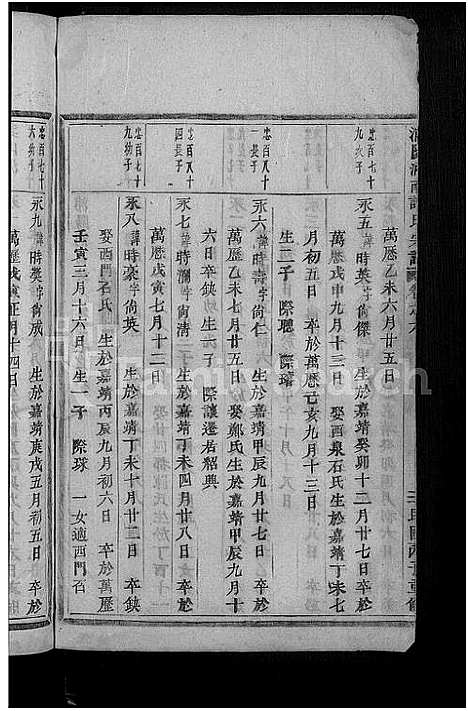 萬歷乙未六月廿五日
忠百七十
九次子
永五 諱時英字尚傑 生於嘉靖癸卯十二月廿七日 卒於
萬歷戊申九月十三日 娶酉泉石氏生於嘉靖丁未七
月初五日 卒於萬歷己亥九月十三日
生二子 際聰 際璿
忠百八十
一長子
永六 諱時壽字尚仁 生於嘉靖甲辰九月廿七日 卒於
萬歷乙未七月廿五日 娶鄭氏生於嘉靖甲辰九月十
六日卒缺 生一子 際讓遷居紹興
忠百八十
四長子
永七 諱時瀾字尚清 生於嘉靖丁未四月廿八日 卒於
萬歷戊寅七月十二日
忠百七十
九幼子
永八 諱時豪字尚英 生於嘉靖丁未十月廿三日 卒缺
娶西門石氏 生於嘉靖丙辰九月初六日 卒於萬歷
壬寅三月十六日 生一子 際球 一女適西門石
忠百七十
六幼子
永九 諱時奬字尚成 生於嘉靖庚戌五月初五日 卒於
萬歷戊寅正月十四日